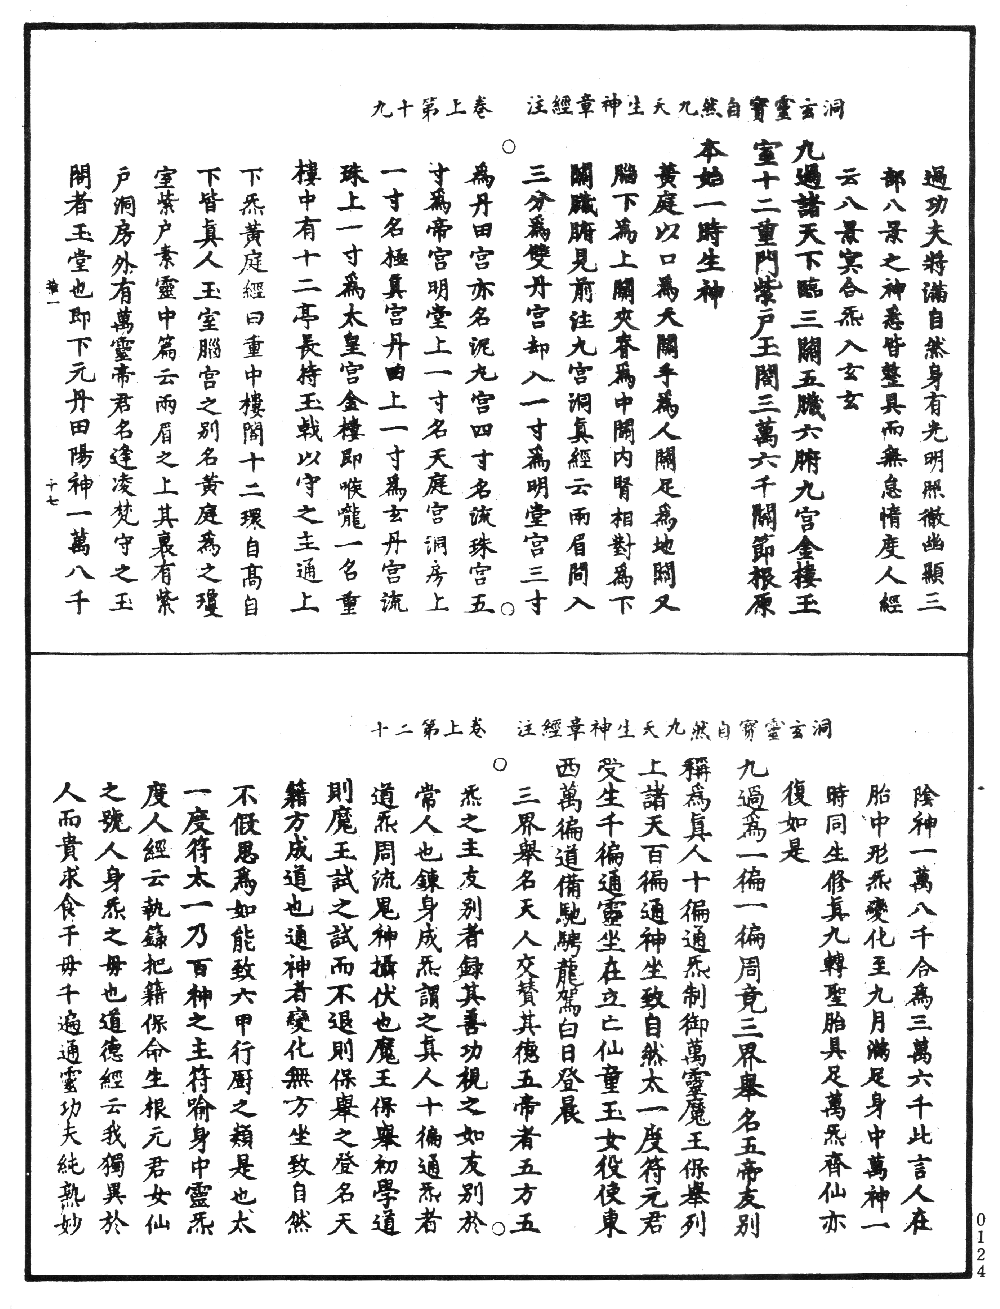 洞玄靈寶自然九天生神章經注　卷上第十九
過功夫將滿自然身有光明照徹幽顯三
部八景之神悉皆整具而無怠惰度人經
云八景冥合炁入玄玄
九過諸天下臨三關五臟六腑九宮金樓玉
室十二重門紫戶玉閤三萬六千關節根原
本始一時生神
黃庭以口為天關手為人關足為地關又
腦下為上關夾脊為中關內腎相對為下
關臟腑見前注九宮洞真經云兩眉間入
三分為雙丹宮却入一寸為明堂宮三寸
為丹田宮亦名泥丸宮四寸名流珠宮五
寸為帝宮明堂上一寸名天庭宮洞房上
一寸名極真宮丹田上一寸為玄丹宮流
珠上一寸為太皇宮金樓即喉嚨一名重
樓中有十二亭長持玉戟以守之主通上
下炁黃庭經曰重中樓閣十二環自高自
下皆真人玉室腦宮之別名黃庭為之瓊
室紫戶素靈中篇云兩眉之上其裏有紫
戶洞房外有萬靈帝君名逢凌梵守之玉
閤者玉堂也即下元丹田陽神一萬八千
十七
洞玄靈寶自然九天生神章經注　卷上第二十
陰神一萬八千合為三萬六千此言人在
胎中形炁變化至九月滿足身中萬神一
時同生修真九轉聖胎具足萬炁齊仙亦
復如是
九過為一徧一徧周竟三界舉名五帝友別
稱為真人十徧通炁制御萬靈魔王保舉列
上諸天百徧通神坐致自然太一度符元君
受生千徧通靈坐在立亡仙童玉女役使東
西萬徧道備馳騁龍駕白日登晨
三界舉名天人交贊其德五帝者五方五
炁之主友別者録其善功視之如友別於
常人也鍊身成炁謂之真人十徧通炁者
道炁周流鬼神攝伏也魔王保舉初學道
則魔王試之試而不退則保舉之登名天
籍方成道也通神者變化無方坐致自然
不假思為如能致六甲行廚之類是也太
一度符太一乃百神之主符喻身中靈炁
度人經云執籙把籍保命生根元君女仙
之號人身炁之母也道德經云我獨異於
人而貴求食于母千遍通靈功夫純熟妙
0124